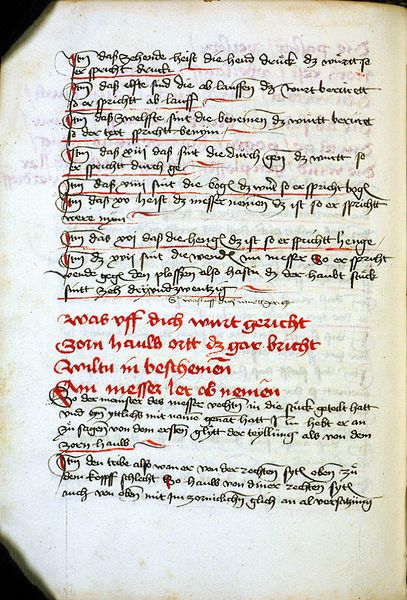 Itm daß zehende heist die hend drück dz württ so
er spricht druck
Itm daß elfte sind die ab lauffen dz wurt
so er spricht ab lauff
Itm daß zwelfte sint die benemen dz wurtt
so der text spricht benym
Itm daß xiii daß sint die durch gen dz wurtt so
er spricht durch ge
Itm daß xiiii sint die bogē dz so er spricht bogē
Itm daß xv heist dz messer nemen dz ist so er spricht
were
Itm das xvi daß die dz ist so er spricht henge
Itm dz xvii sint die wend im messer So er spricht
wende gegē den plossen also hastu dz der haubt stuck
sintt
Was uff dich wurt gericht
Zorn hauw ortt dz gar bricht
Wiltu in beschemen
Am messer ler ab nemen
So der meinster des messer vechtn in die stück getelt hatt
und ein ytlichs mit name genāt hatt hebt er an
zu sagen von dem ersten glytt der teyllung als von dem
zorn hauw
Itm den tribe also wan er von der rechten sytē oben zu
dem kopff schlecht So hauw von diner rechten sytē
auch von oben mit im zornichlichen glich an al versatzung